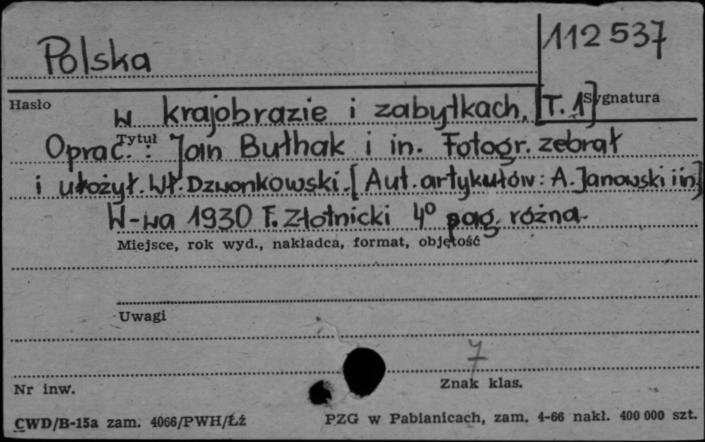 Polska
112 537
Hasło
Sygnatura
w krajobrazie i zabytkach. [T. 1]
Tytuł
Oprac. : Jan Bułhak i in. Fotogr. zebrał
i ułożył. Wł. Dzwonkowski. [Aut. artykułów: A. Janowski i in]
W-wa 1930 F. Złotnicki 4° pag. różna.
Miejsce, rok wyd., nakładca, format, objętość
Uwagi
7
Nr inw.
Znak klas.
CWD/B-15a zam. 4066/PWH/Łż
PZG w Pabianicach, zam. 4-66 nakł. 400 000 szt.